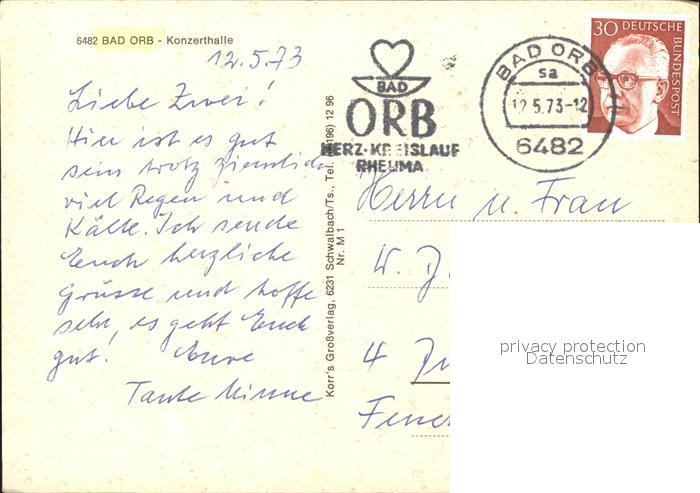 6482 BAD ORB - Konzerthalle
12.5.73
Liebe Zwei!
Hier ist es gut
sein trotz ziemlich
viel Regen und
Kälte. Ich sende
Euch herzliche
Grüsse und hoffe
sehr, es geht Euch
gut! Eure
Tante Minne
Korr's Großverlag, 6231 Schwalbach/Ts., Tel. (06196) 12 96
Nr. M 1
BAD
ORB
HERZ·KREISLAUF
RHEUMA
BAD ORB 1
sa
12.5.73-12
6482
30 DEUTSCHE
BUNDESPOST
Herrn u. Frau
W.
4
privacy protection
Datenschutz